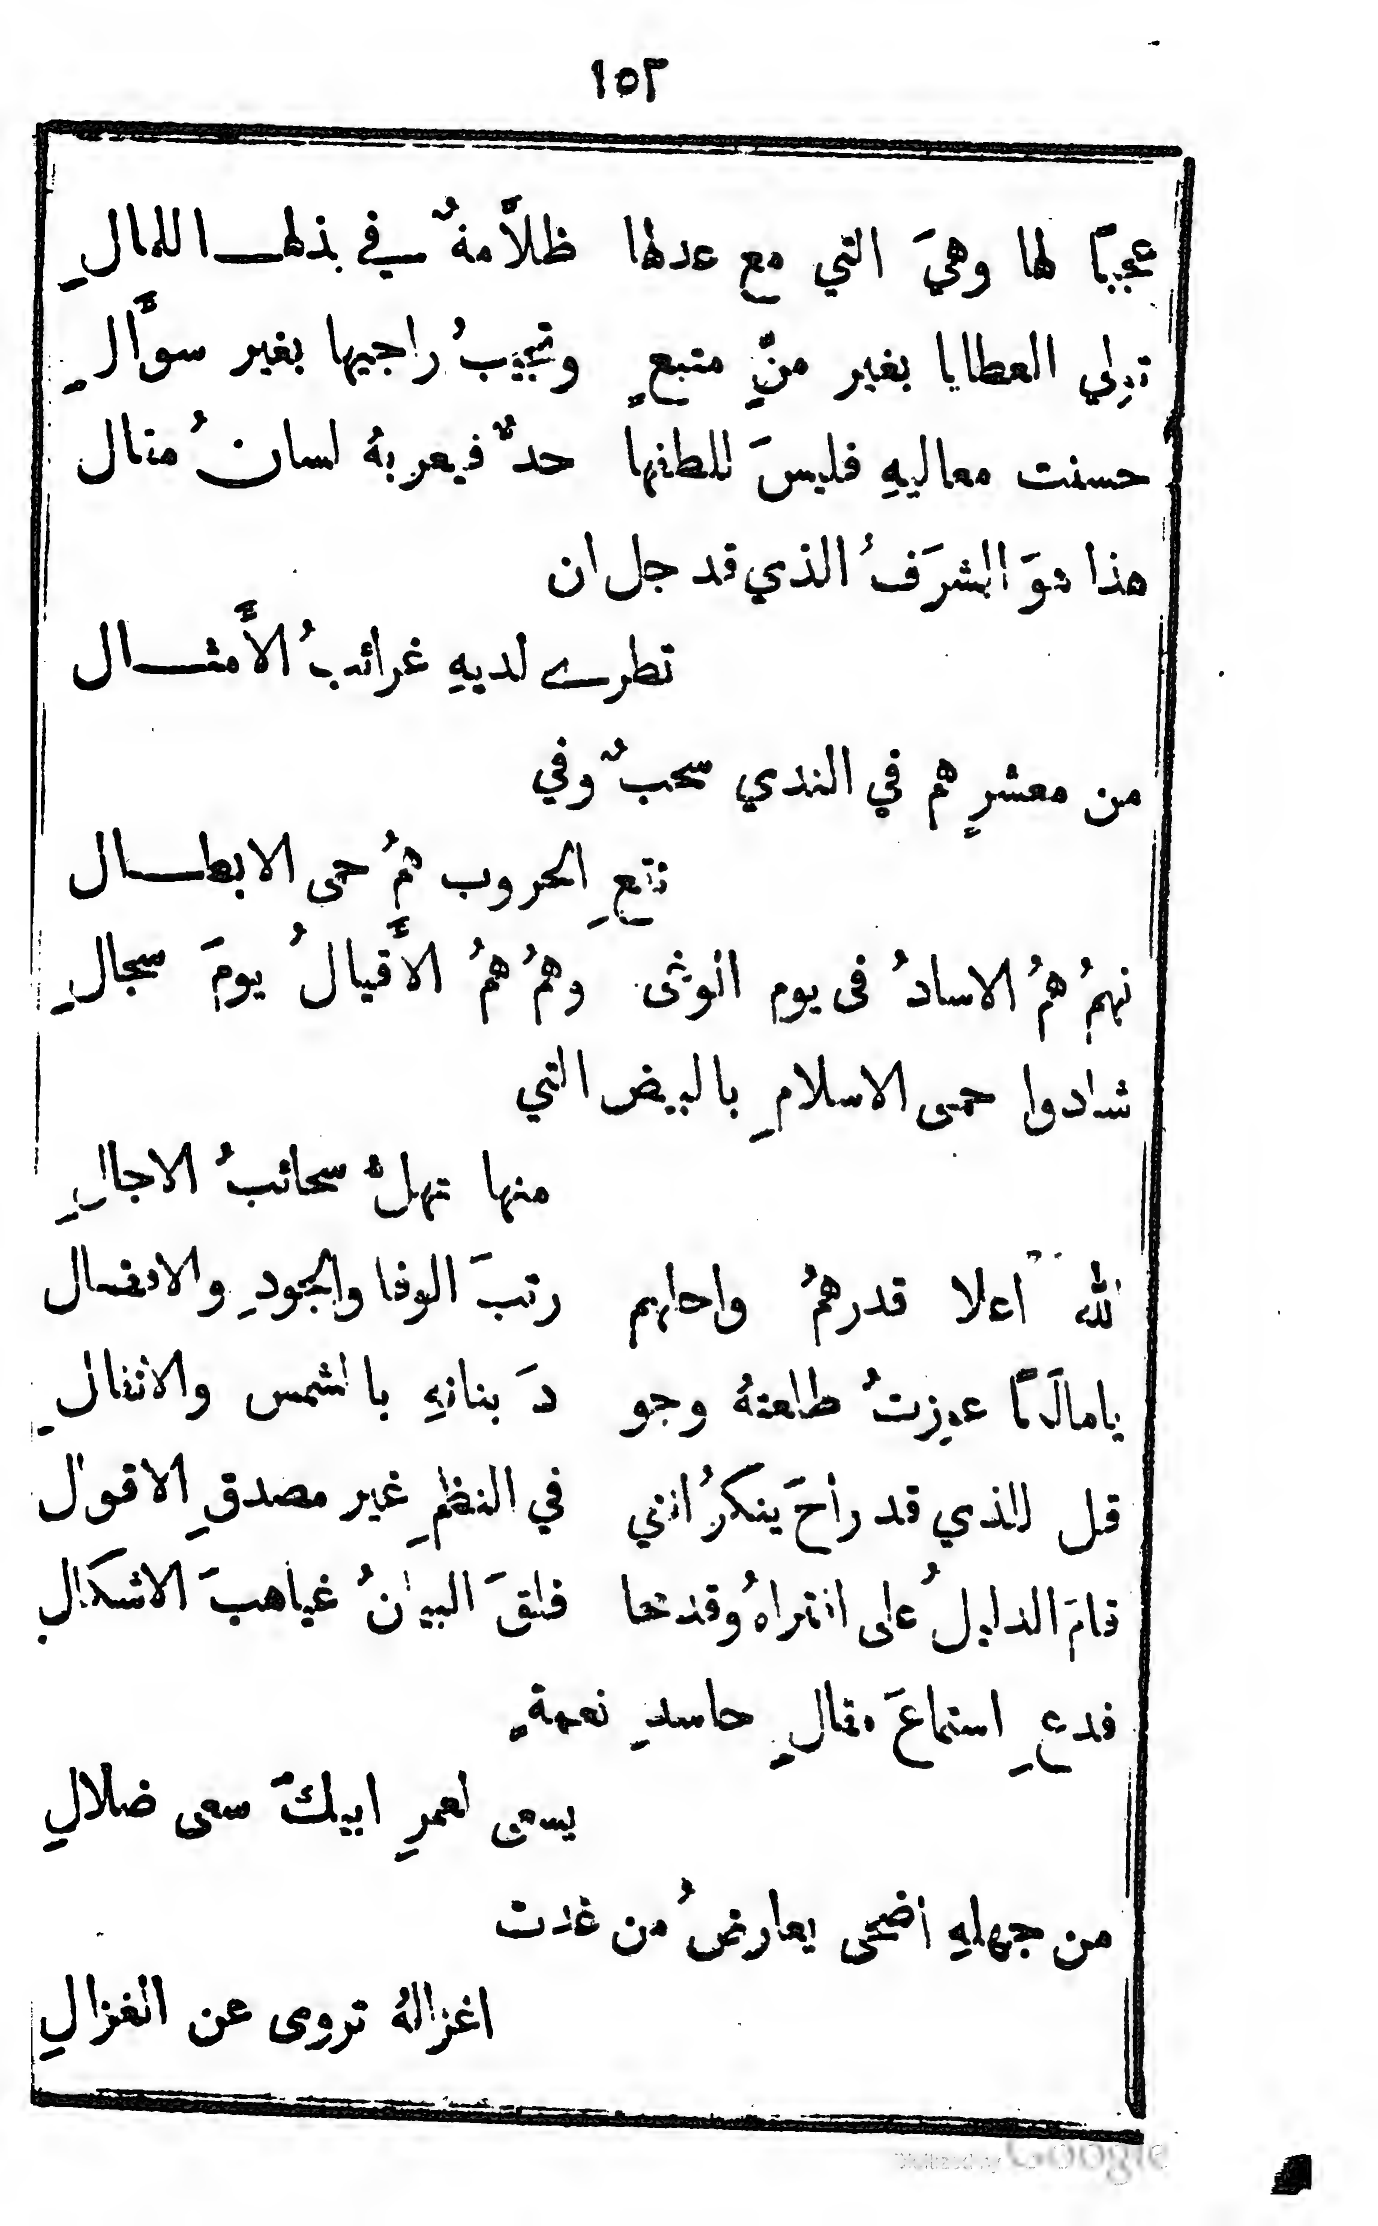 ١٥٣
عجبًا لها وهيَ التي مع عدلها ظلاَّمةٌ في بذلها للمالِ
تولي العطايا بغير منٍّ متبعٍ وتجيبُ راجيها بغير سوَّالِ
حسنت معاليهِ فليسَ للطفها حدٌّ فيعربهُ لسانُ مقال
هذا هوَ الشرَفُ الذي قد جل ان
تطرے لديهِ غرائبُ الأَمثال
من معشرٍ هم في الندي سحبٌ وفي
نقعِ الحروب همُ حمى الابطال
فهمُ همُ الاسادُ في يوم الوغى وهمُ همُ الأَقيالُ يومَ سجالِ
شادوا حمى الاسلامِ بالبيض التي
منها تهلُّ سحائبُ الاجالِ
لله اعلا قدرهمُ واحلهم رتبَ الوفا والجودِ والافضال
يامالكًا عوزتُ طلعتهُ وجو دَ بنانهِ بالشمس والانفالِ
قل للذي قد راحَ ينكرُ انني في النظمِ غير مصدقِ الاقوال
قامَ الدليلُ على افتراهُ وقد محا فلقَ البيانُ غياهبَ الاشكالِ
فدعِ استماعَ مقالِ حاسدِ نعمةٍ
يسعى لعمرِ ابيكَ سعى ضلالِ
من جهلهِ اضحى يعارضُ من غدت
اغزالهُ تروى عن الغزالِ
Digitized by Google